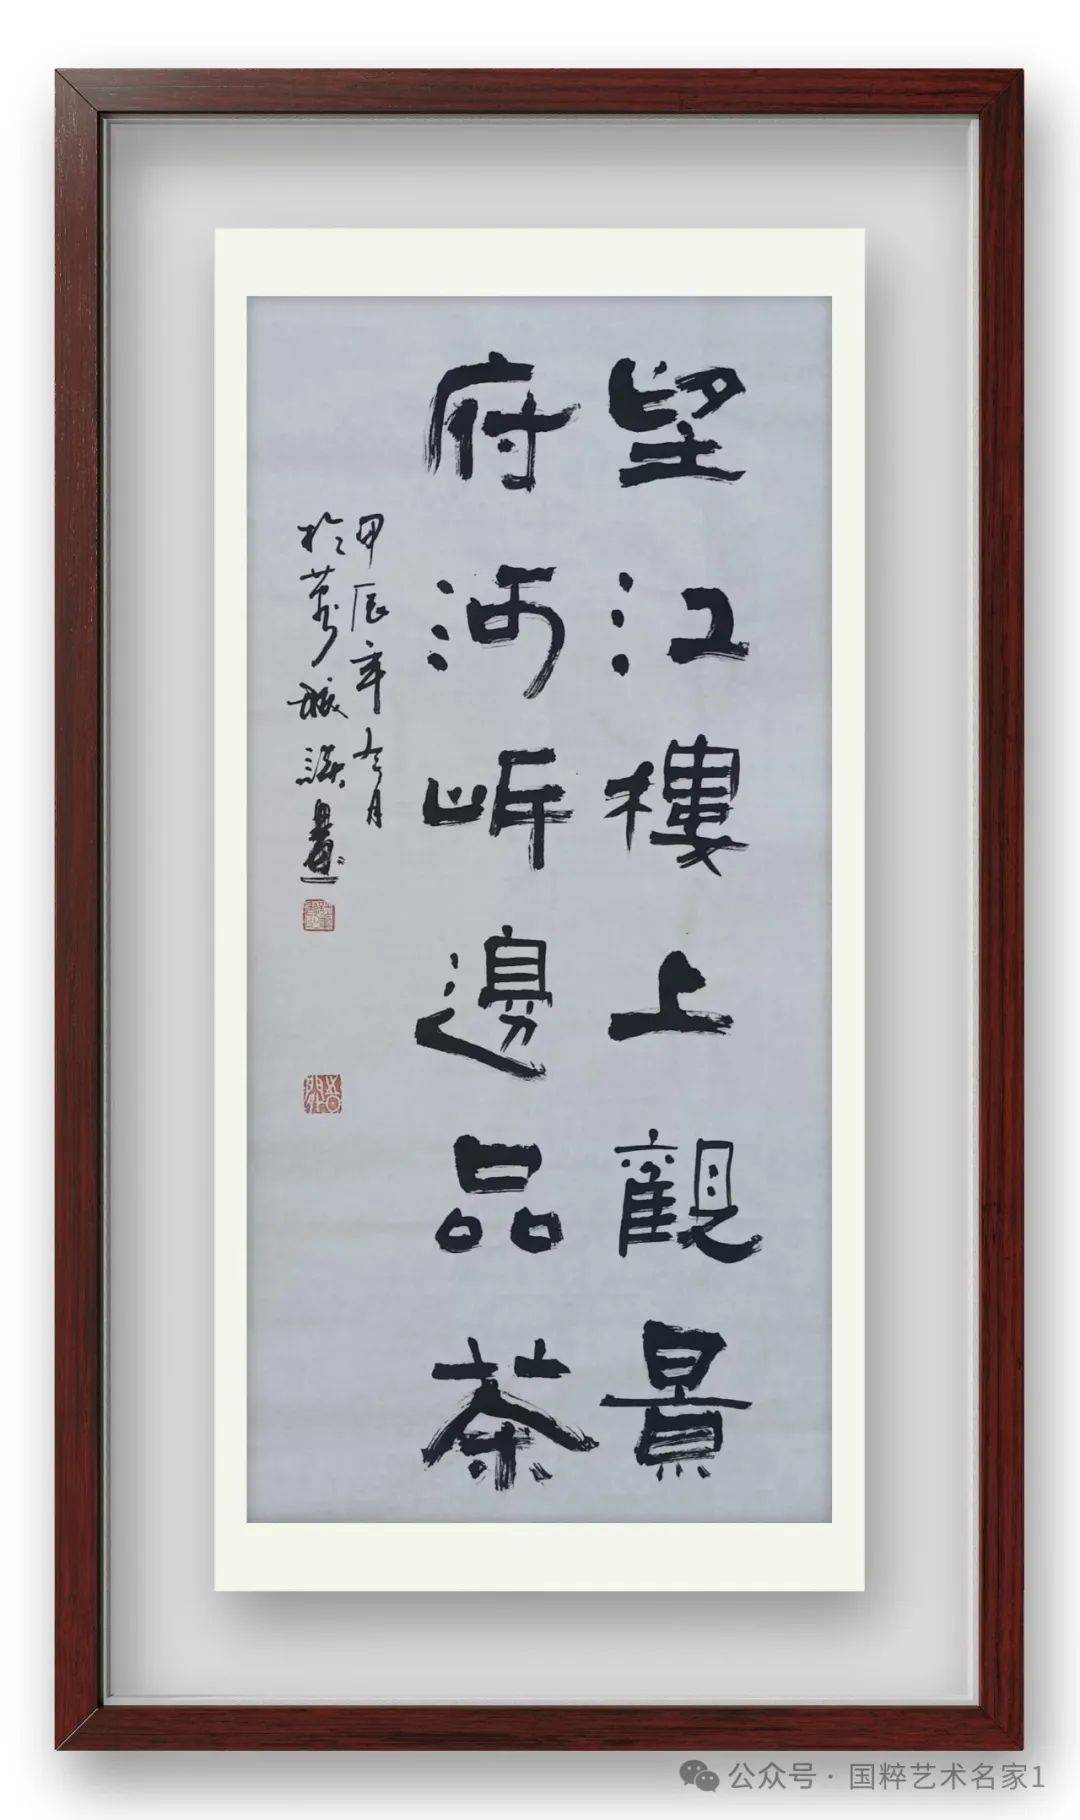 望江樓上觀景
府河岍邊品茶
甲辰年冬月
於蓉城
公众号 · 国粹艺术名家1